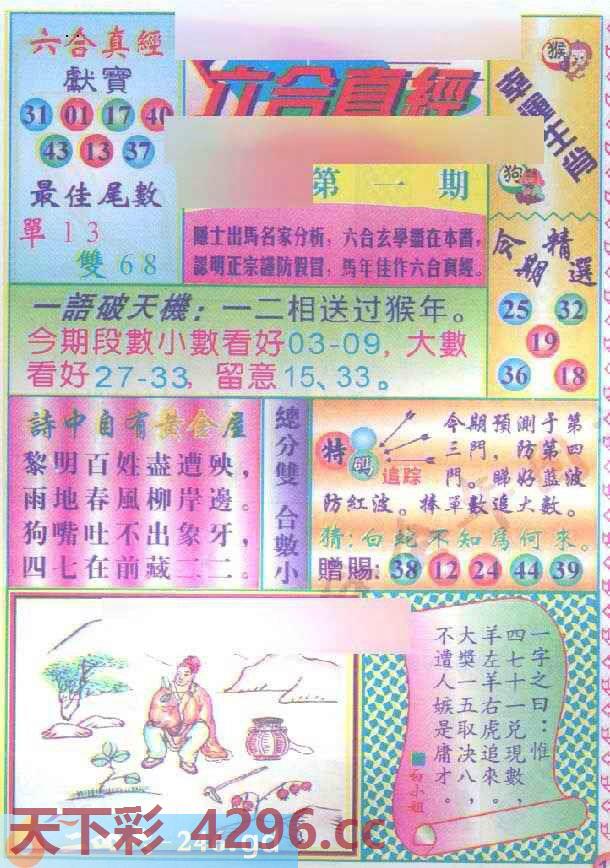 六合真經
獻寶
31 01 17 40
43 13 37
最佳尾數
單13
雙68
六合真經
第一期
隱士出馬名家分析，六合玄學盡在本書，
認明正宗謹防假冒，馬年佳作六合真經。
猴
幸運生肖
狗
今期精選
25 32
19
36 18
一語破天機：一二相送过猴年。
今期段數小數看好03-09，大數
看好27-33，留意15、33。
詩中自有黃金屋
黎明百姓盡遭殃，
雨地春風柳岸邊。
狗嘴吐不出象牙，
四七在前藏二二。
總分雙 合數小
特
碼
追踪
今期預測子第
三門，防第四
門。睇好藍波
防紅波。捧單數追大數。
猜：白蛇不知爲何來。
贈賜：38 12 24 44 39
一字之曰：惟
四七十一兑現數，
羊左羊右虎追來。
大獎一五取决八，
不遭人嫉是庸才。
白小姐
天下彩 4296.cc